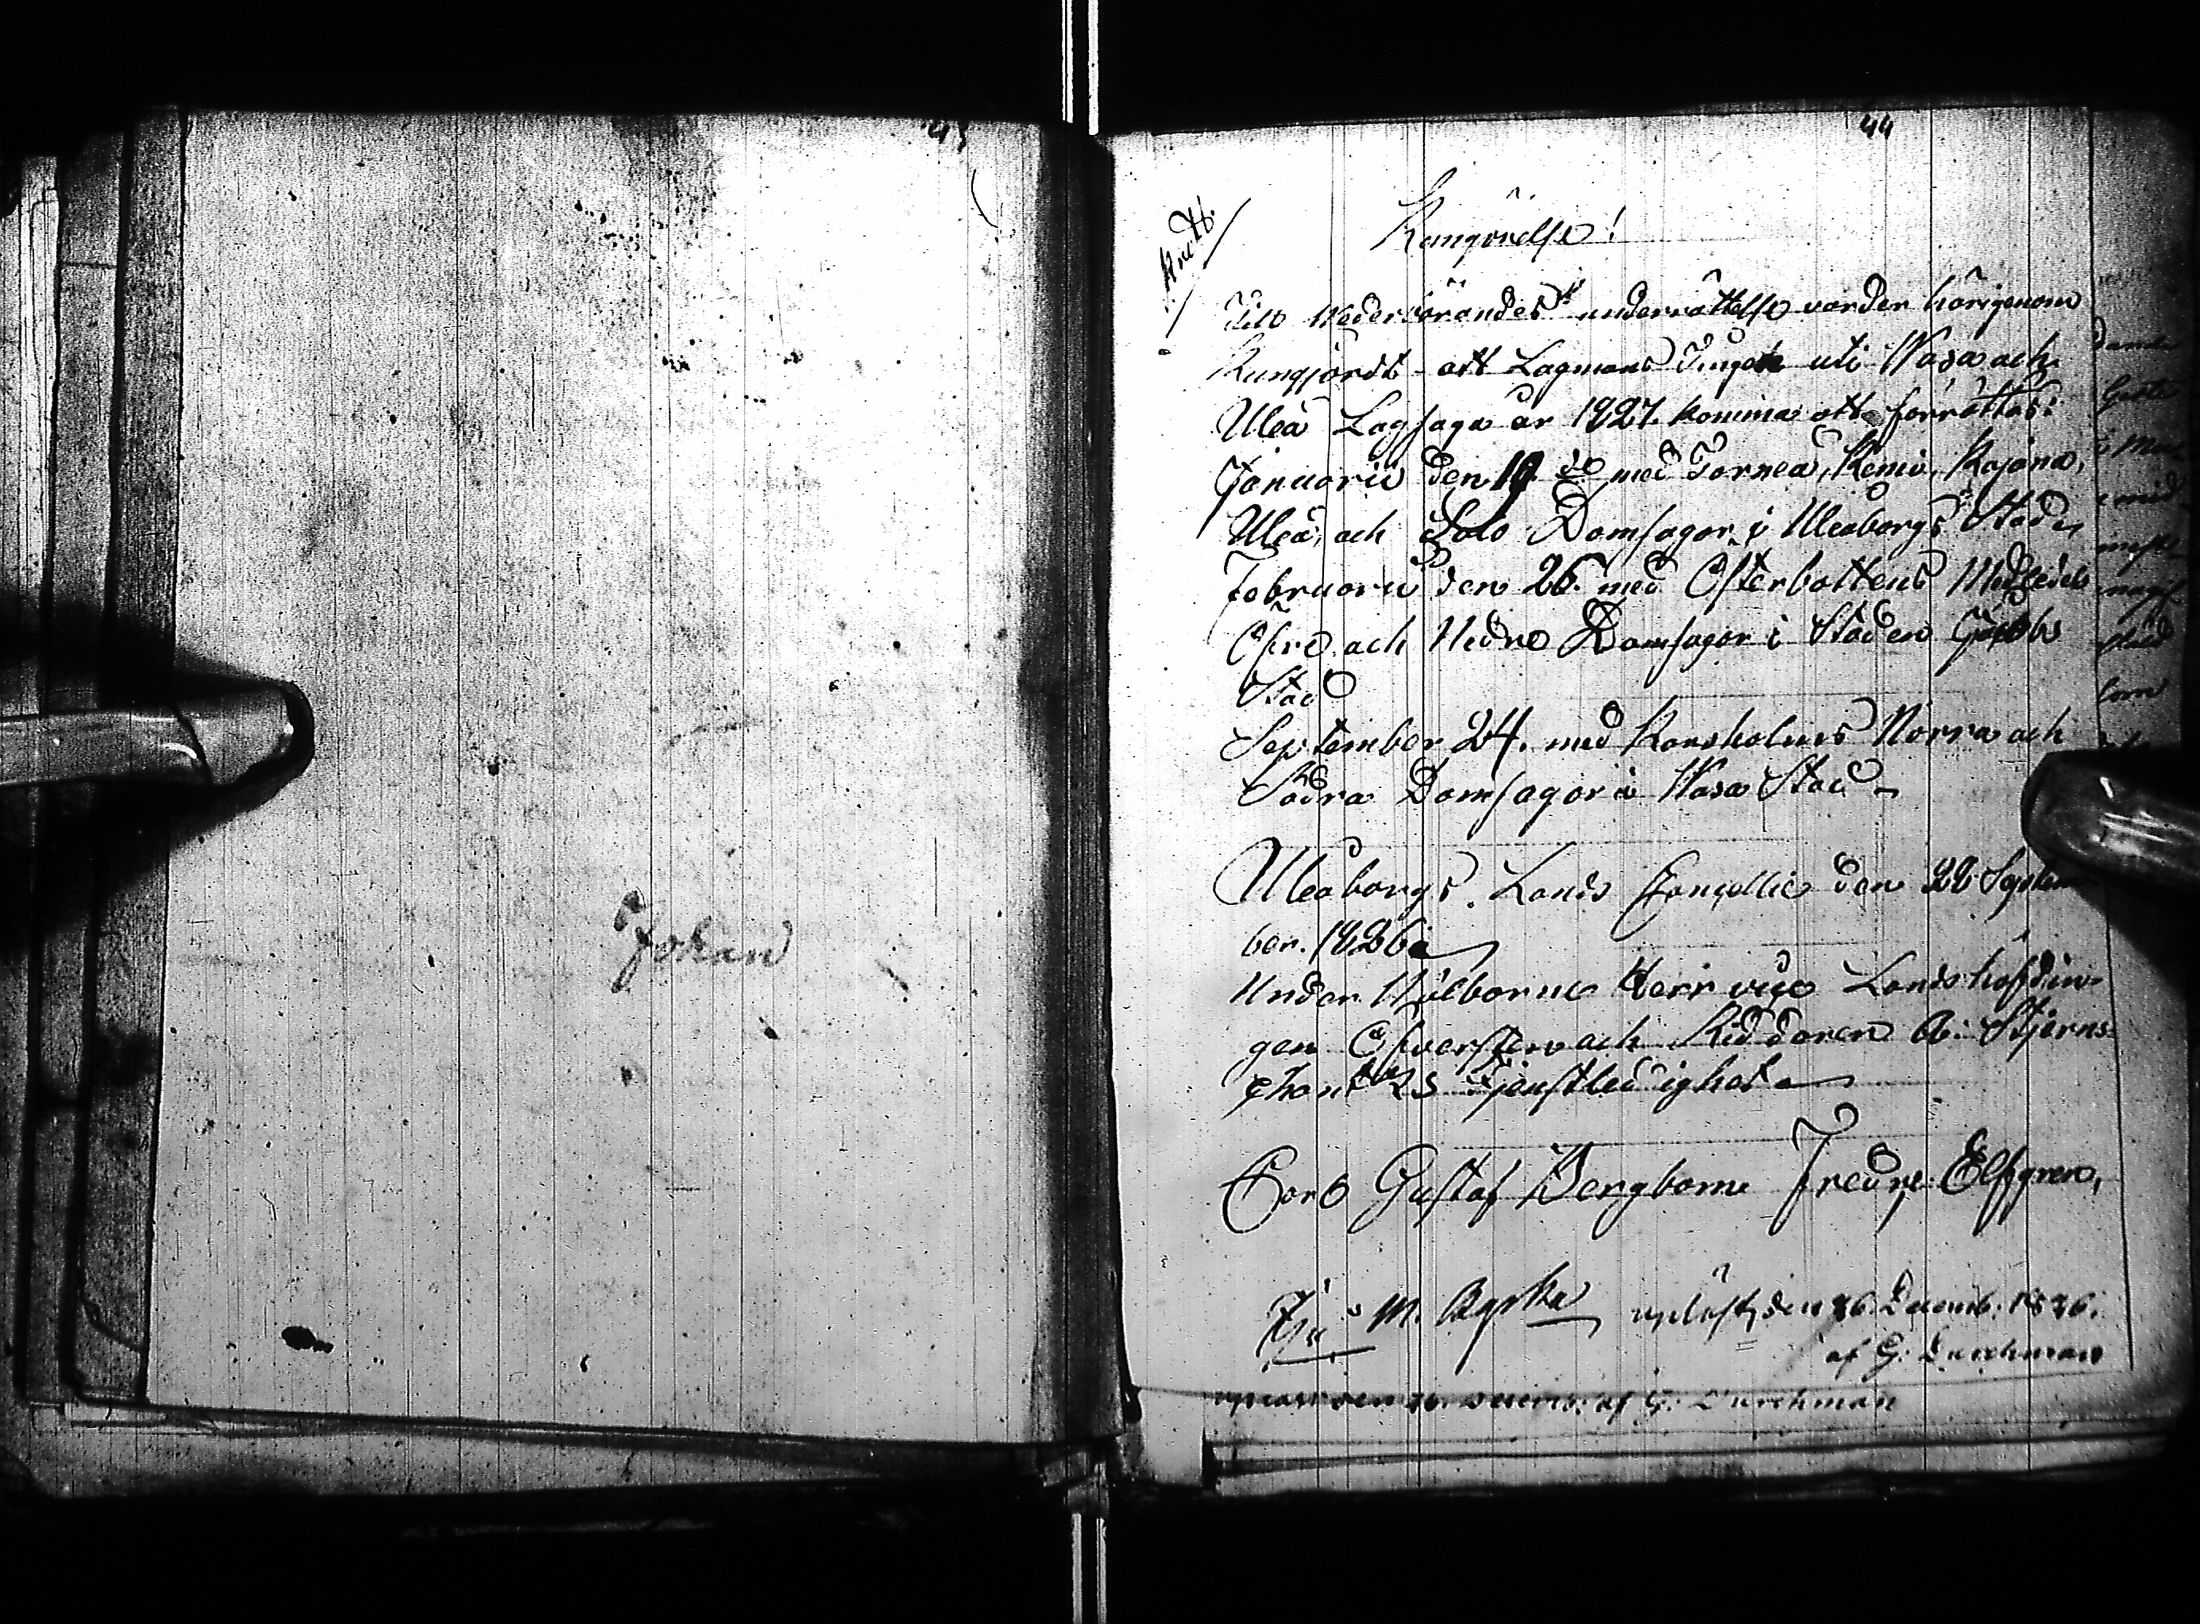 43
Johan
44
Kungörelse!
Till Wederbörandes underrättelse varder härigenom
Kungjordt att Lagmans Tingen uti Wasa och
Uleå Lagsaga år 1827. komma att förrättas:
Januarii den 19 med Torneå, Kemi, Kajana,
Uleå, och Salo Domsagor i Uleåborgs Stad
Februarii den 26. med Österbottens Medledels
Öfre och Nedre Domsagor i Staden Jacobs
Stad
September 24. med Korsholms Norra och
Södra Domsagor i Wasa Stad
Uleåborgs Lands Cancellie den 22 Septem
ber. 1826
Under Wälborne Herr vice Landshöfdin
gen Öfversten och Riddaren A: Stjerns
chantz's Tjenstledighet
Carl Gustaf Bergbom Fredr: Elfgren,
M. upläst den 26 Decemb: 1826.
af G: Durchman
den 26. Decemb: af G: Durchman